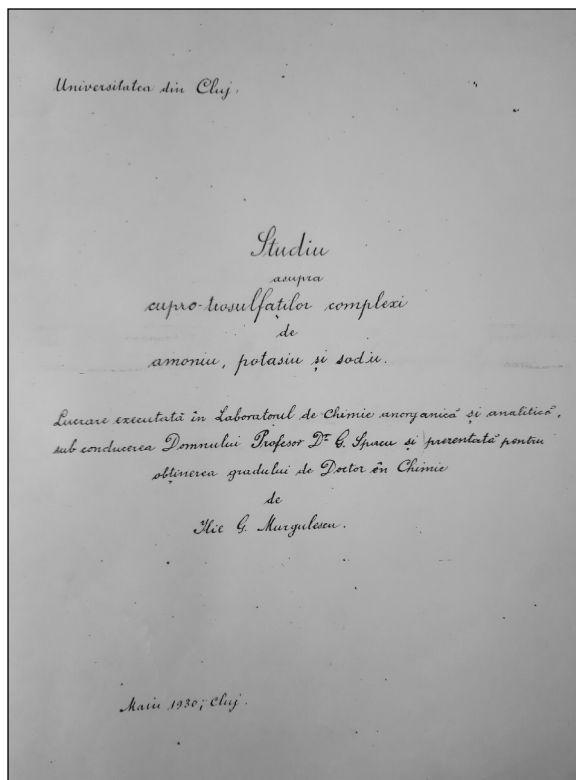 Universitatea din Cluj.
Studiu
asupra
cupro-tiosulfaților complexi
de
amoniu, potasiu și sodiu.
Lucrare executată în Laboratorul de Chimie anorganică și analitică,
sub conducerea Domnului Profesor Dr G. Spacu și prezentată pentru
obținerea gradului de Doctor în Chimie
de
Ilie G. Murgulescu.
Maiu 1930, Cluj.